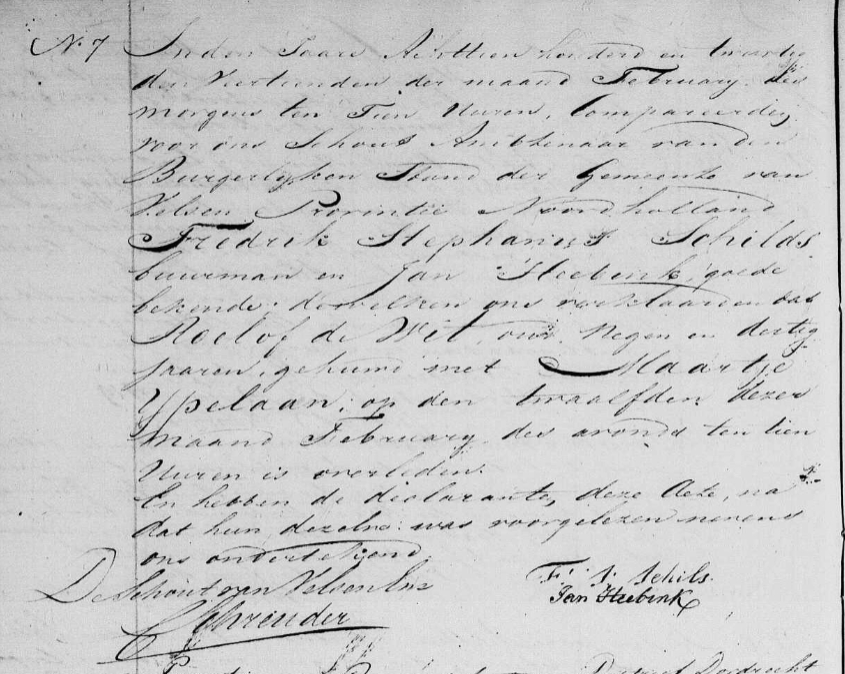 N. 7 In den Jaare Achttien honderd en twintig
den Veertienden der maand February des
morgens ten Tien Uuren, Compareerden
voor ons Schout Ambtenaar van den
Burgerlyken Stand der Gemeente van
Velsen Provintie Noordholland
Fredrik Stephanus Schilds
buurman en Jan Heebink, goede
bekende: dewelken ons verklaarden dat
Roelof de Wit, oud Negen en dertig
jaaren, gehuwd met Maartje
Ypelaan; op den twaalfden dezer
maand February des avonds ten tien
Uuren is overleden.
En hebben de declaranten, deze Acte, na
dat hun dezelve was voorgelezen nevens
ons ondertekend
De Schout van Velsen Enz
Schreuder
F. S. Schils
Jan Heebink
Dordrecht